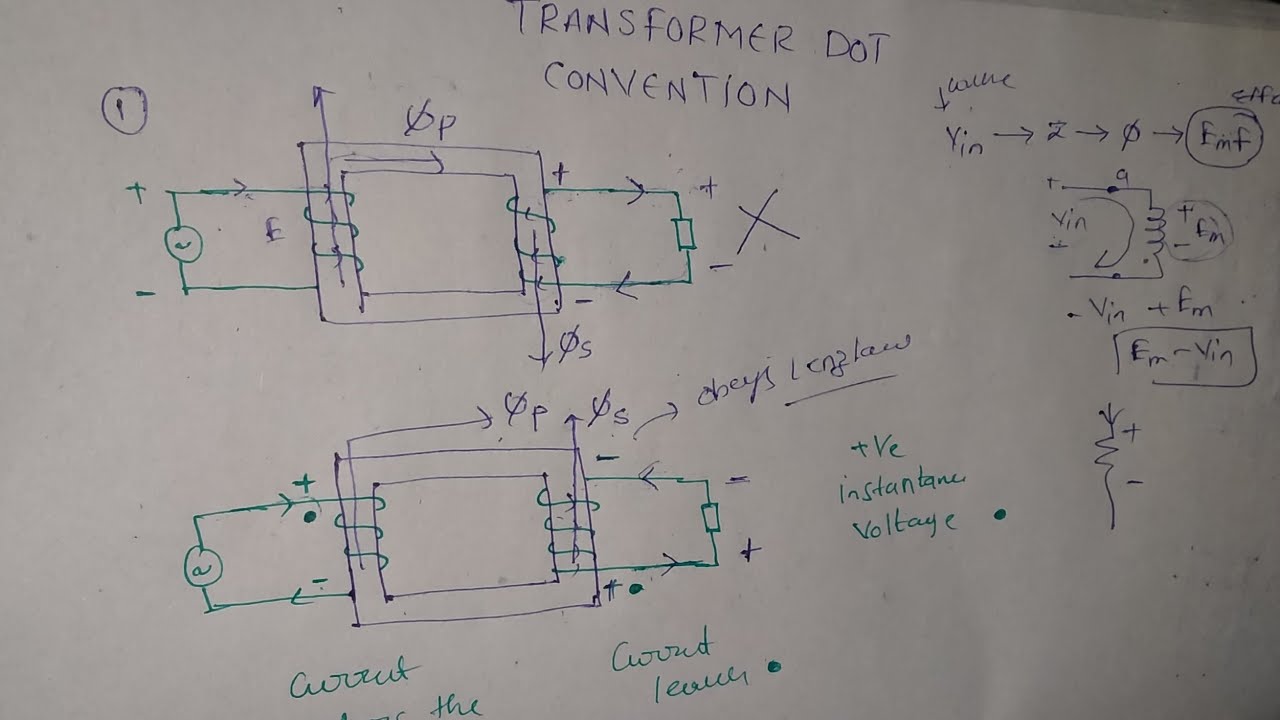 TRANSFORMER DOT
CONVENTION
1
ϕp
+
E
-
+
-
+
-
ϕs
Vin → → ϕ → Emf
+ a
Vin
+
+
Em
-
- Vin + Em
Em - Vin
+
-
ϕp
ϕs
obeys lenz law
+
-
-
+
-
+
+ve
instantane
voltage
Current
the
Current
leaves